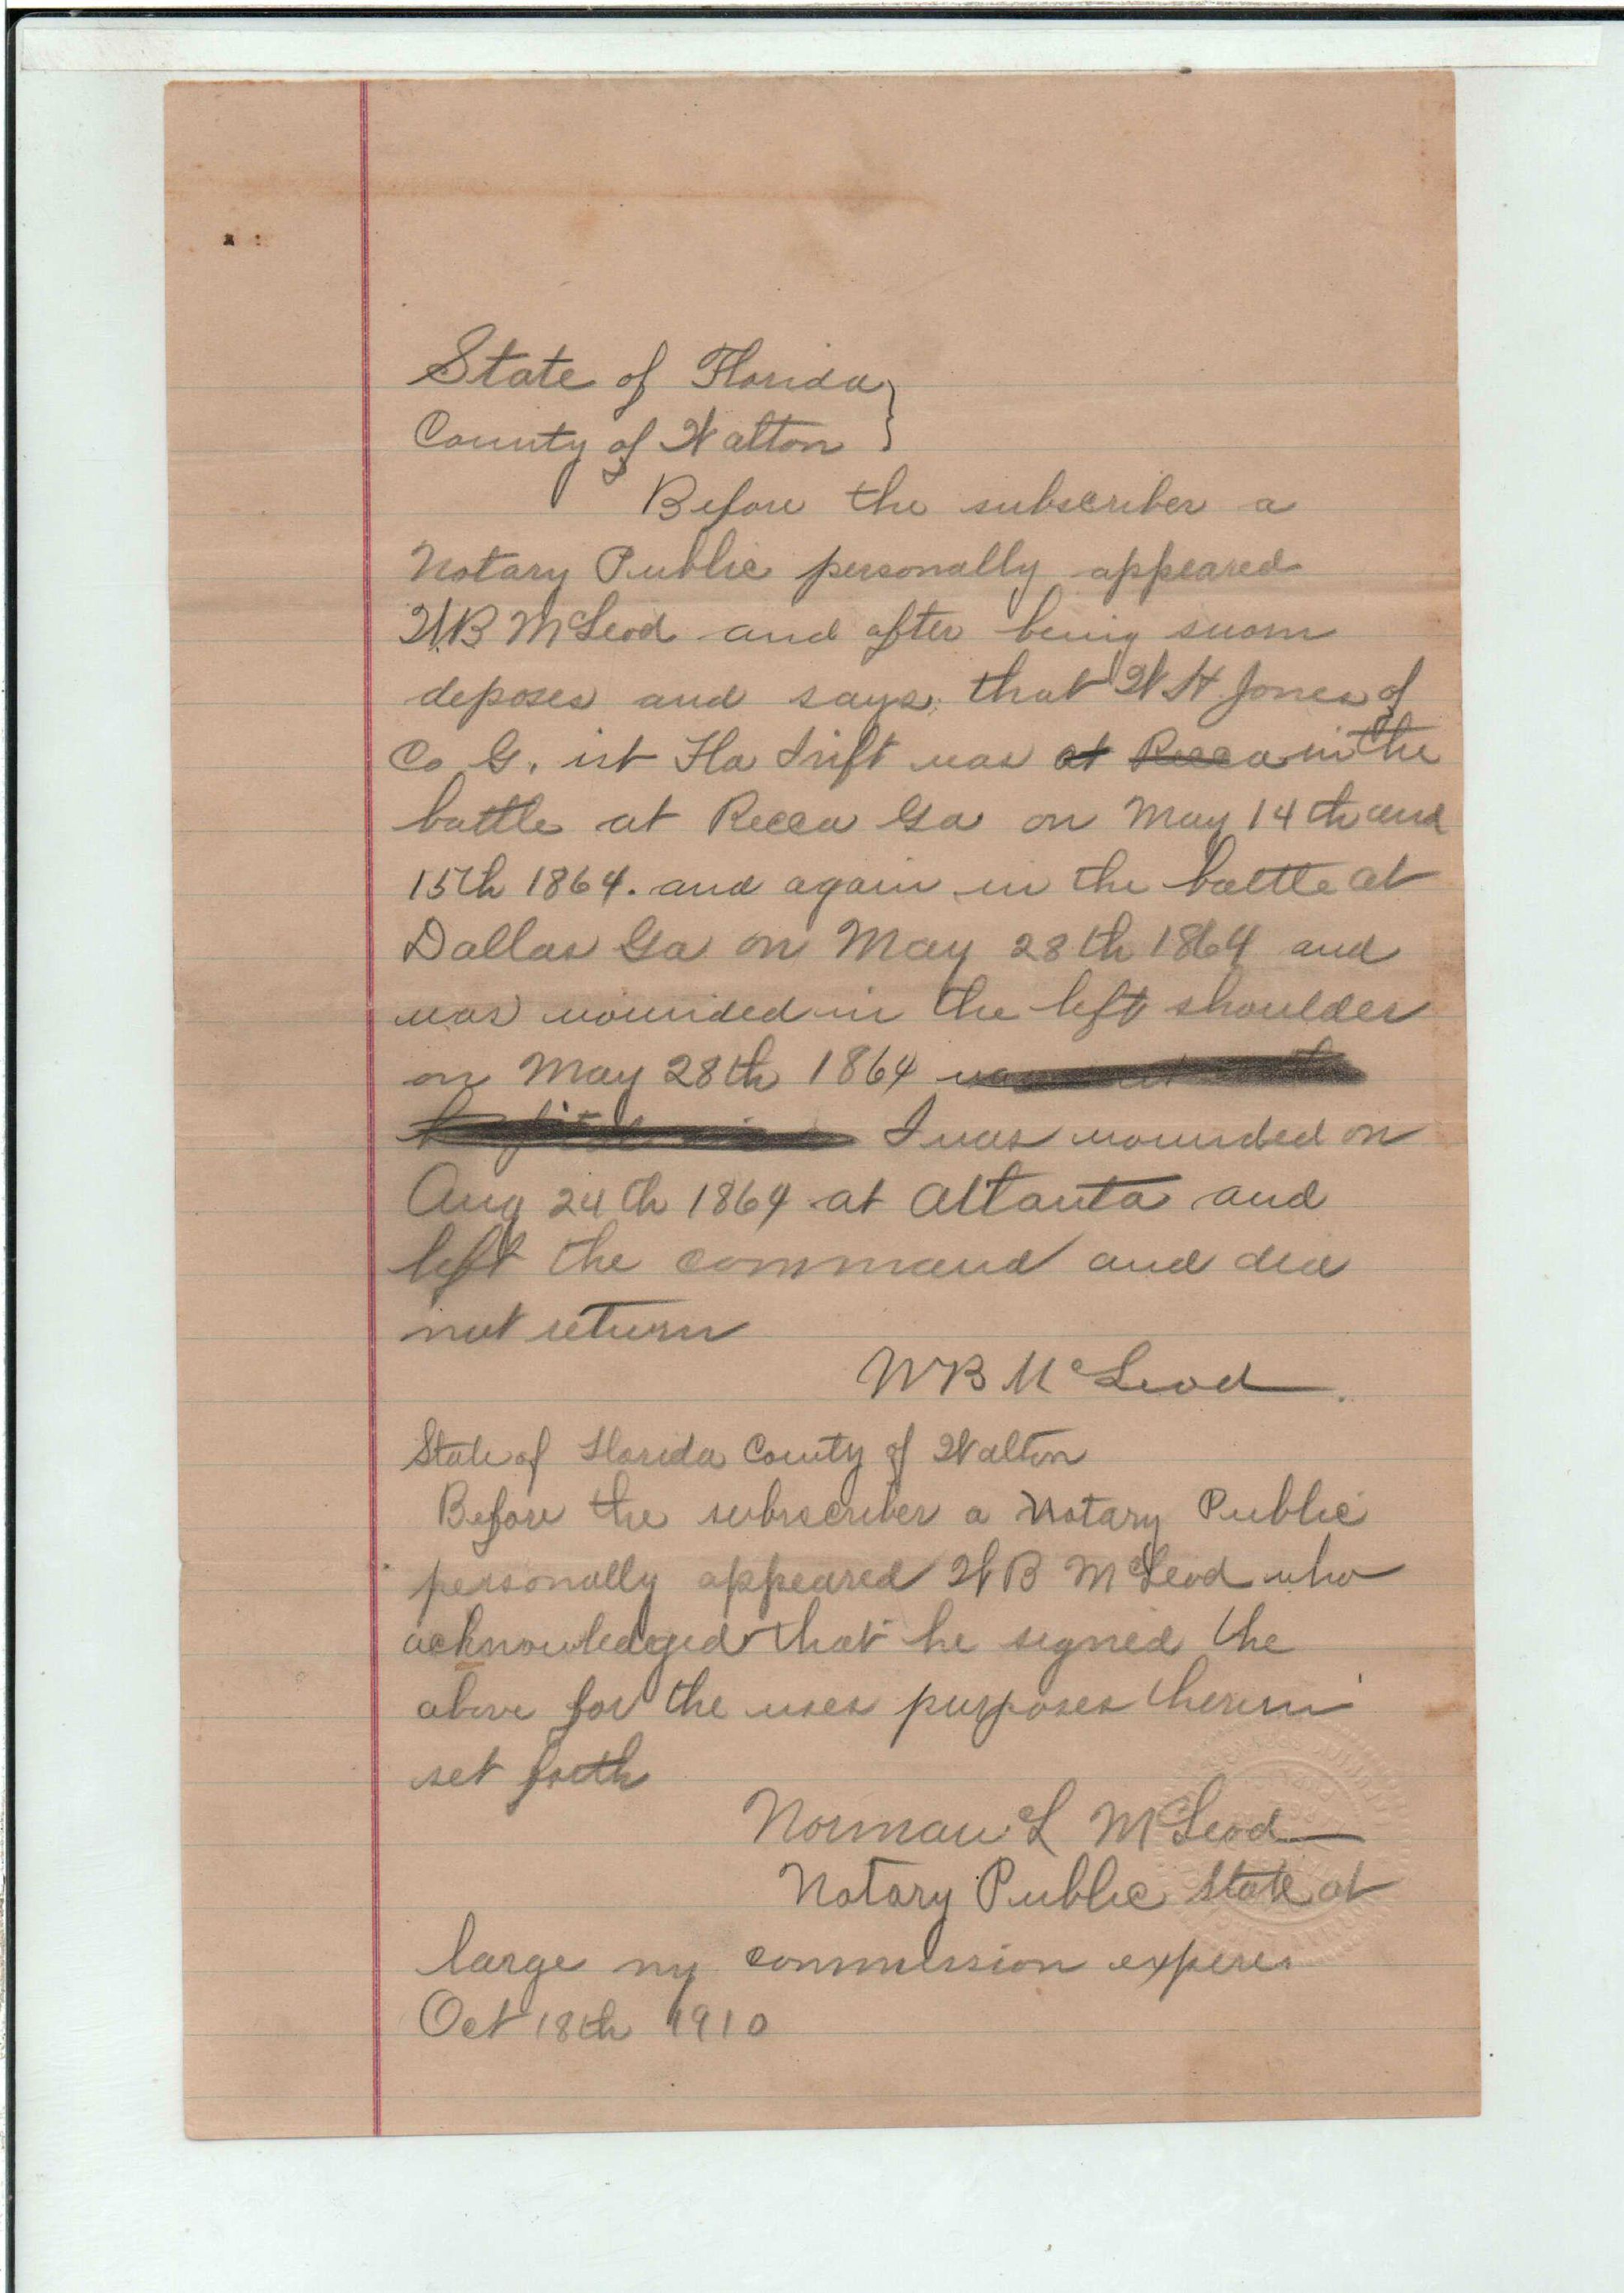 State of Florida }
County of Walton }
Before the subscriber a
Notary Public personally appeared
W.B McLeod and after being suorn
deposes and says, that W H Jones of
Co G. ist Fla Inft was at Recca in the
battle at Recca Ga on May 14th and
15th 1864. and again in the battle at
Dallas Ga on May 28th 1864 and
was wounded in the left shoulder
on May 28th 1864
I was wounded on
Aug 24th 1864 at Altanta and
left the command and did
not return
WB McLeod
State of Florida County of Walton
Before the subscriber a Notary Public
personally appeared W B McLeod who
acknowledged that he signed the
above for the uses purposes therein
set forth
Norman L McLeod
Notary Public State at
large my commission experes
Oct 18th 1910